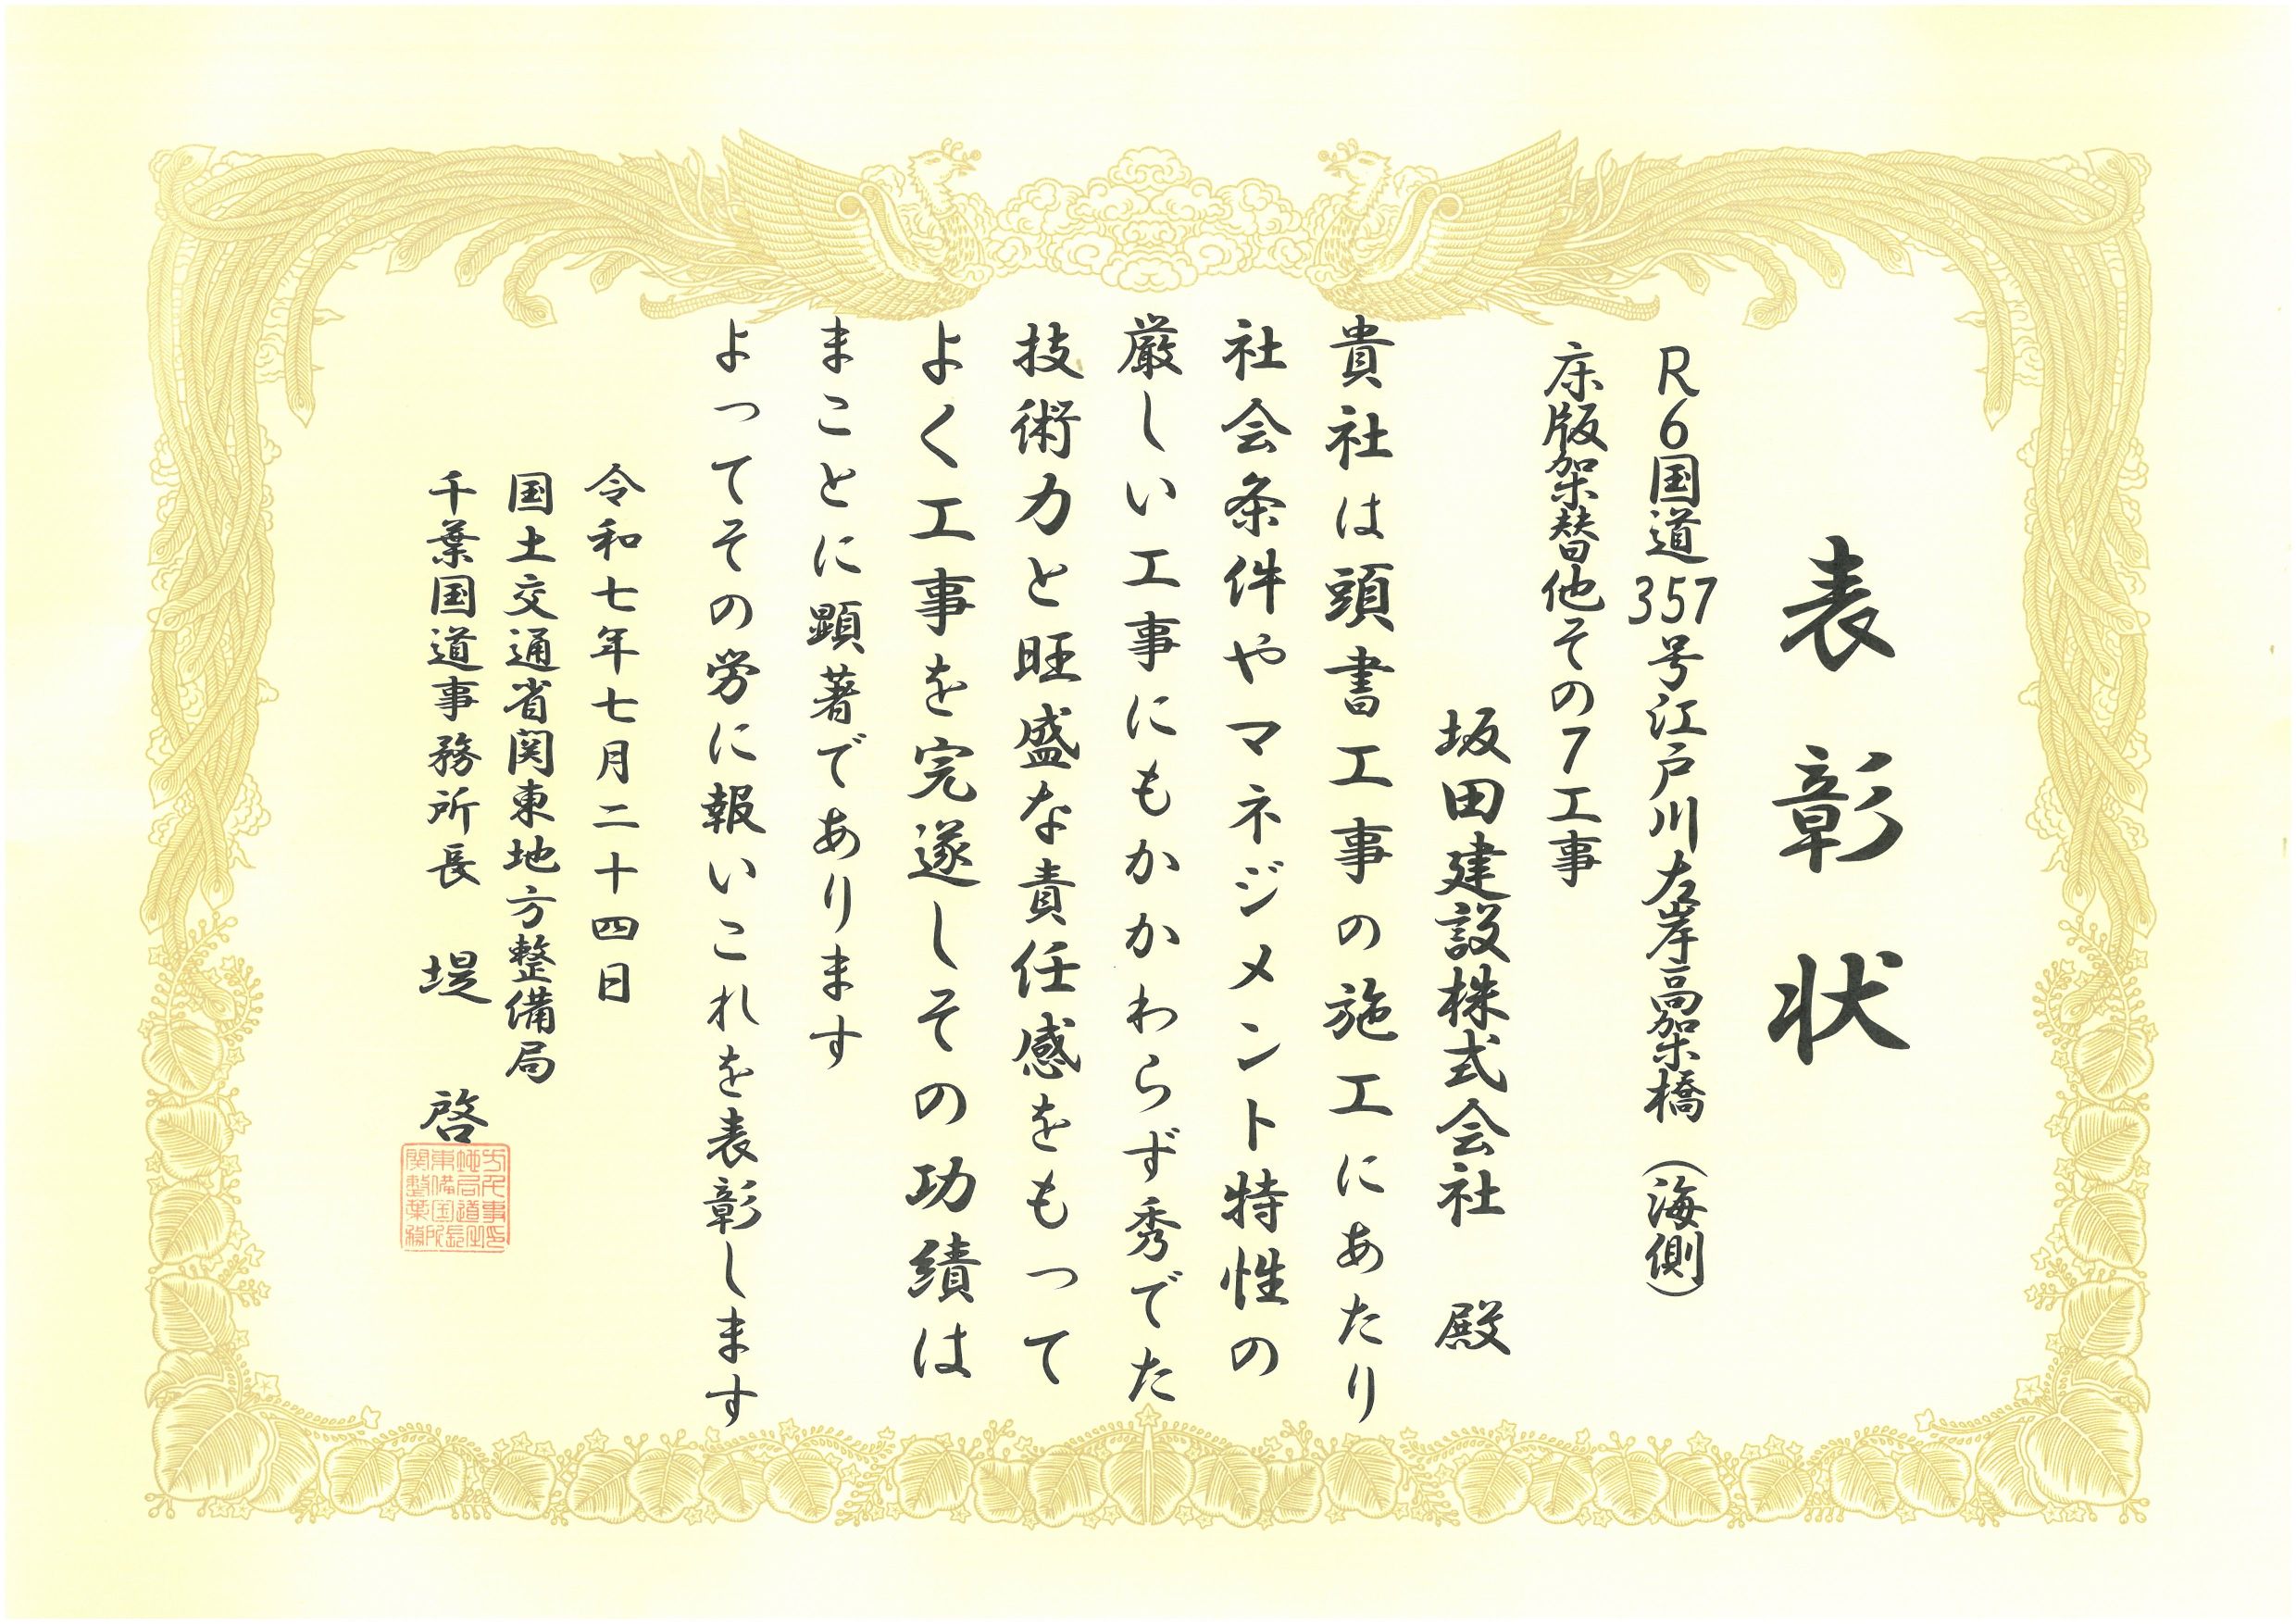 表彰状
R6国道357号江戸川左岸高架橋（海側）
床版架替他その7工事
坂田建設株式会社 殿
貴社は頭書工事の施工にあたり
社会条件やマネジメント特性の
厳しい工事にもかかわらず秀でた
技術力と旺盛な責任感をもって
よく工事を完遂しその功績は
まことに顕著であります
よってその労に報いこれを表彰します
令和七年七月二十四日
国土交通省関東地方整備局
千葉国道事務所長 堤 啓